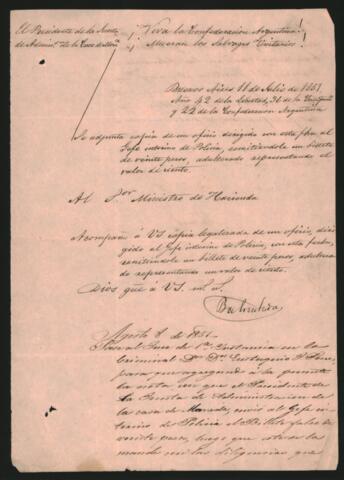 El Presidente de la Junta
de Admin.n de la Casa de Mon.a
¡Viva la Confederacion Argentina!
¡Mueran los Salvages Unitarios!
Buenos Aires 11 de Julio de 1851
Año 42 de la Libertad, 36 de la
y 22 de la Confederacion Argentina
Se adjunta copia de un oficio dirigido con esta fha. al
Jefe interino de Policia, remitiendole un billete
de veinte pesos, adulterado representando el
valor de ciento.
Al S.or Ministro de Hacienda
Acompaño á VS. copia legalizada de un oficio, diri
gido al Jefe interino de Policia, con esta fecha,
remitiendole un billete de veinte pesos, adultera
do representando un valor de ciento.
Dios gue á VS. m. a.
Agosto 8 de 1851
Pase al Juez de 1.a Instancia en lo
Criminal D.r D.n Eustoquio J.
para que agregando á la
la nota en que el Presidente de
la Junta de Administracion de
la casa de Moneda, envió al Gefe in
terino de Policia el billete falso de
veinte pesos, luego que este se la
mande con las diligencias que